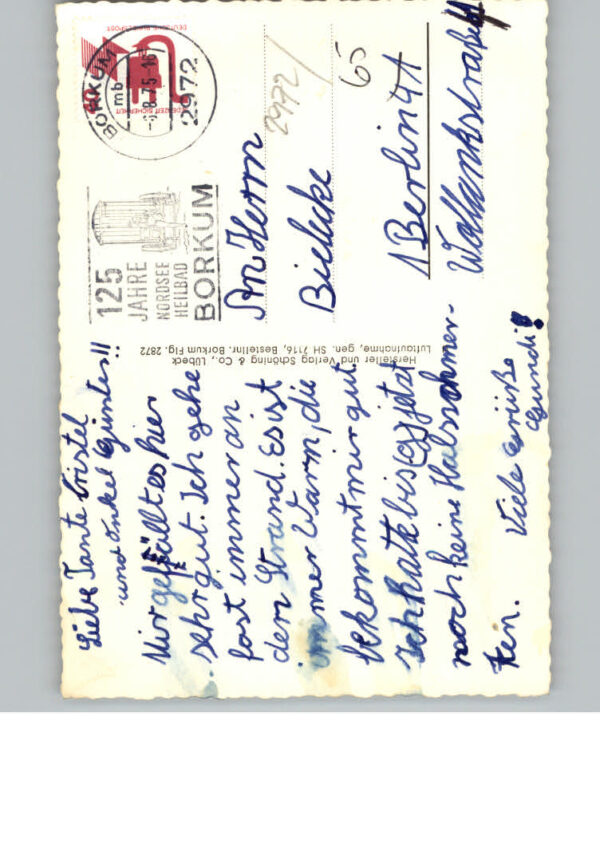 Liebe Tante Cristel
und Onkel Günter!!
Mir gefällt es hier
sehr gut. Ich gehe
fast immer an
den Strand. Es ist
immer Warm, die
bekommt mir gut.
Ich hatte bis jetzt
noch keine Halsschmer-
zen.
Viele Grüße
Gundi!
Hersteller und Verlag Schöning & Co., Lübeck
Luftaufnahme, gen. SH 7116, Bestellnr. Borkum Flg. 2872
125
JAHRE
NORDSEE
HEILBAD
BORKUM
BORKUM
mb
2972
DEUTSCHE BUNDESPOST
JEDERZEIT SICHERHEIT
40
2972/
65
An Herrn
Bielicke
1 Berlin 41
Wollankstraße